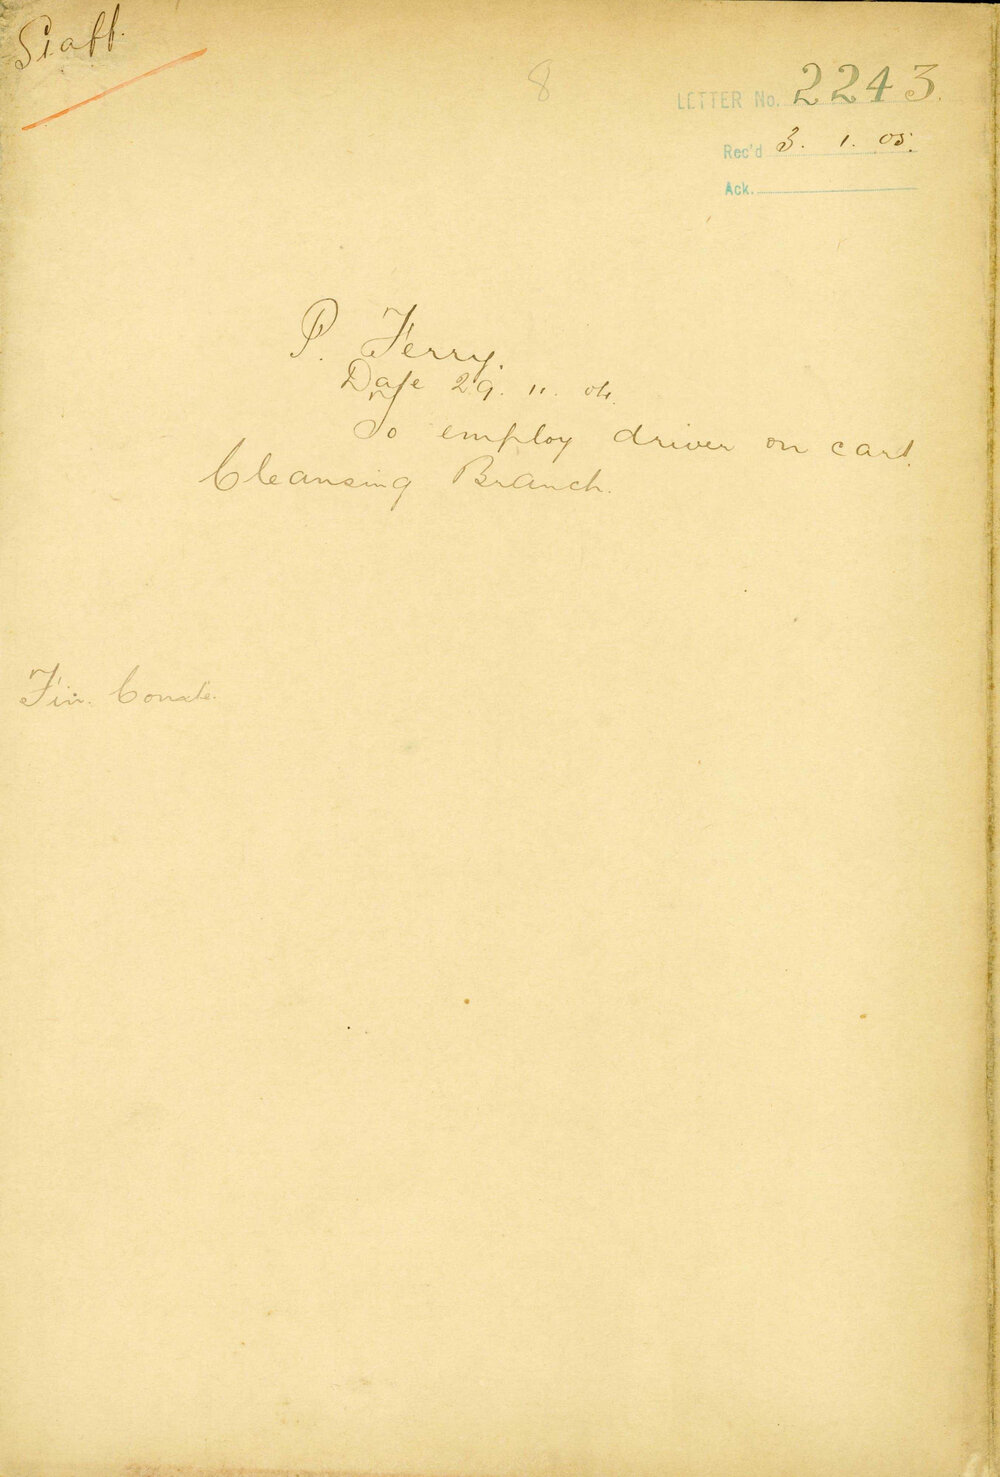 Staff.
8
LETTER No. 2243.
Rec'd 3. 1. 05.
Ack.
P. Ferry.
Date 29. 11. 04.
To employ driver on cart.
Cleansing Branch.
Fin. Comte.